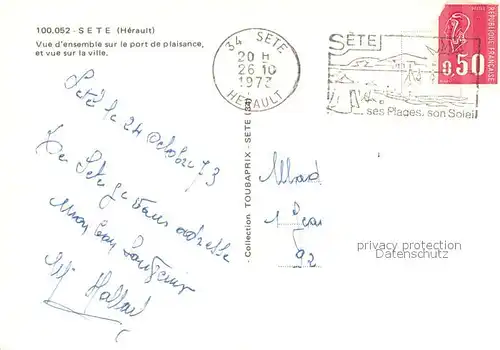 100.052 - SETE (Hérault)
Vue d'ensemble sur le port de plaisance,
et vue sur la ville.
34 SETE
20 H
26 10
1973
HERAULT
SÈTE
ses Plages, son Soleil
0,50
REPUBLIQUE FRANÇAISE
Sète le 24 Octobre 73
De Sète je vous adresse
mon bon Souvenir
- Collection TOUBAPRIX - SETE (34)
Mad
1
92
privacy protection
Datenschutz